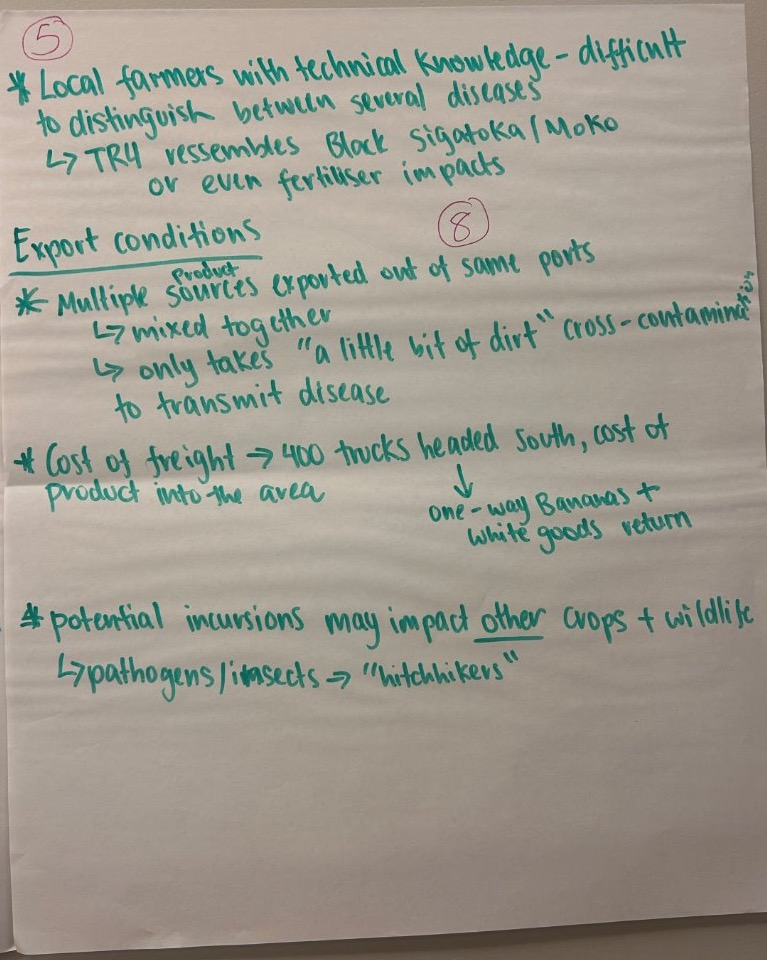 5
* Local farmers with technical knowledge - difficult
to distinguish between several diseases
↳ TR4 ressembles Black Sigatoka/Moko
or even fertiliser impacts
Export conditions
8
product
* Multiple sources exported out of same ports
↳ mixed together
↳ only takes "a little bit of dirt" cross-contamination
to transmit disease
* Cost of freight → 400 trucks headed South, cost of
product into the area
↓
one-way Bananas +
white goods return
* potential incursions may impact other crops + wildlife
↳ pathogens/insects → "hitchhikers"